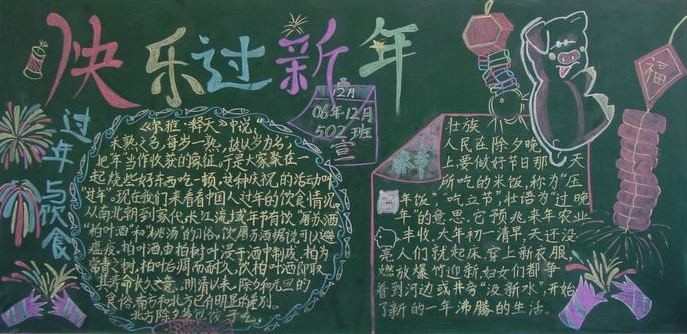 快乐过新年
2月
06年12月
502班
宣
过年与饮食
《尔雅·释天》中说,
禾熟之名,每岁一熟,故以岁为名,
把年当作收获的象征。于是大家聚在一
起烧些好东西吃一顿,这种庆祝的活动叫
"过年"。现在我们来看看中国人过年的饮食情况,
从南北朝到宋代,长江流域年节有饮"屠苏酒"
"柏叶酒"和"桃汤"的习俗,饮屠苏酒据说可以避
瘟疫,柏叶酒由柏树叶浸于酒中制成,柏为
常青之树,柏叶后凋而耐久,饮柏叶酒
其寿命长久之意。明清以来,除夕和元旦的
食俗南方和北方已有明显的差别。
北方除夕
春节
壮族
人民在除夕晚
上要做好节日那一天
所吃的米饭,称为"压
年饭","吃立节"壮语为"过晚
年"的意思。它预兆来年农业
丰收,大年初一清早,天还没
亮人们就起床,穿上新衣服,
燃放爆竹迎新,妇女们都争
着到河边或井旁"汲新水",开始
了新的一年沸腾的生活。
福